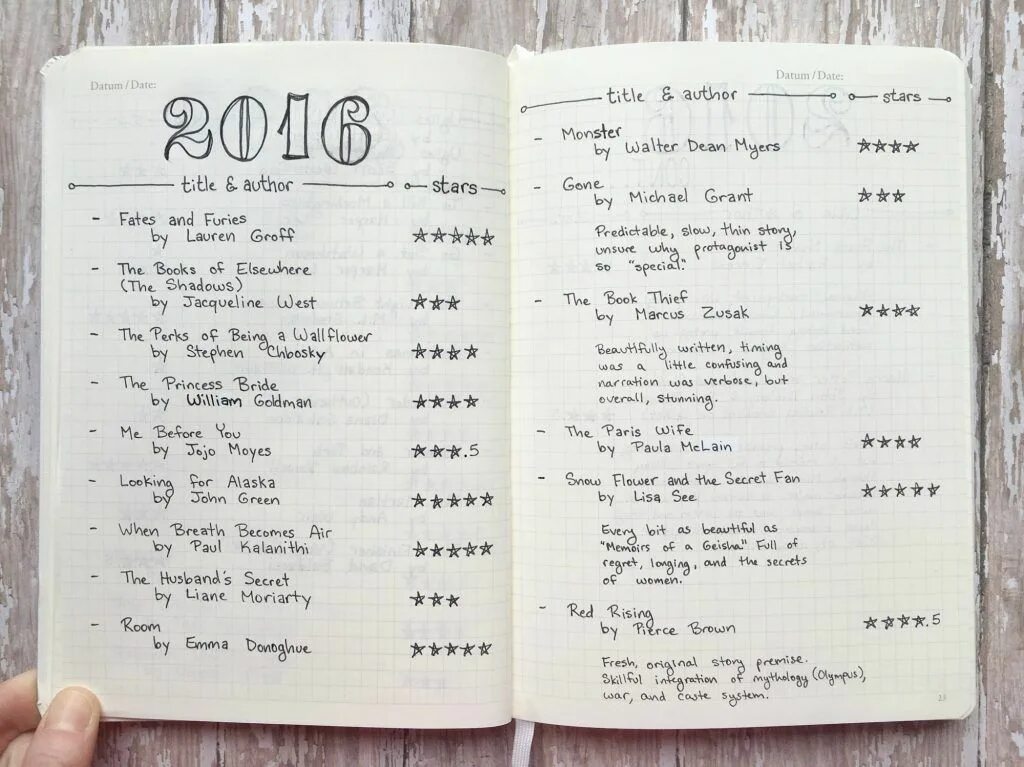 Datum/Date:
2016
title & author stars
- Fates and Furies
by Lauren Groff ☆☆☆☆☆
- The Books of Elsewhere
(The Shadows)
by Jacqueline West ☆☆☆
- The Perks of Being a Wallflower
by Stephen Chbosky ☆☆☆☆
- The Princess Bride
by William Goldman ☆☆☆☆
- Me Before You
by Jojo Moyes ☆☆☆.5
- Looking for Alaska
by John Green ☆☆☆☆☆
- When Breath Becomes Air
by Paul Kalanithi ☆☆☆☆☆
- The Husband's Secret
by Liane Moriarty ☆☆☆
- Room
by Emma Donoghue ☆☆☆☆☆
Datum/Date:
title & author stars
- Monster
by Walter Dean Myers ☆☆☆☆
- Gone
by Michael Grant ☆☆☆
Predictable, slow, thin story,
unsure why protagonist is
so "special."
- The Book Thief
by Marcus Zusak ☆☆☆☆
Beautifully written, timing
was a little confusing and
narration was verbose, but
overall, stunning.
- The Paris Wife
by Paula McLain ☆☆☆☆
- Snow Flower and the Secret Fan
by Lisa See ☆☆☆☆☆
Every bit as beautiful as
"Memoirs of a Geisha." Full of
regret, longing, and the secrets
of women.
- Red Rising
by Pierce Brown ☆☆☆☆.5
Fresh, original story premise.
Skillful integration of mythology (Olympus),
war, and caste system.
23